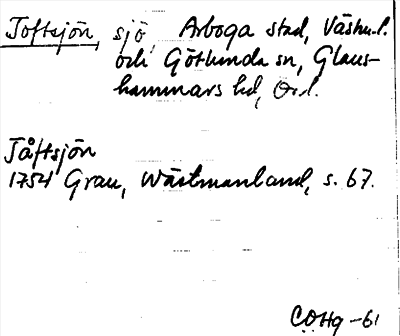 Toftsjön, sjö, Arboga stad, Västm.l.
och Götlunda sn, Glans-
hammars hd, Ör.l.
Tåftsjön
1754 Grau, Wästmanland, s. 67.
COHg -61